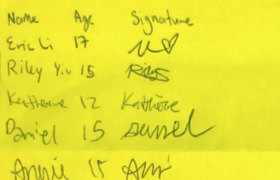 Name Age Signature
Eric Li 17
Riley Yiu 15 Riley
Katherine 12 Katherine
Daniel 15 Daniel
Annie 15 Anni